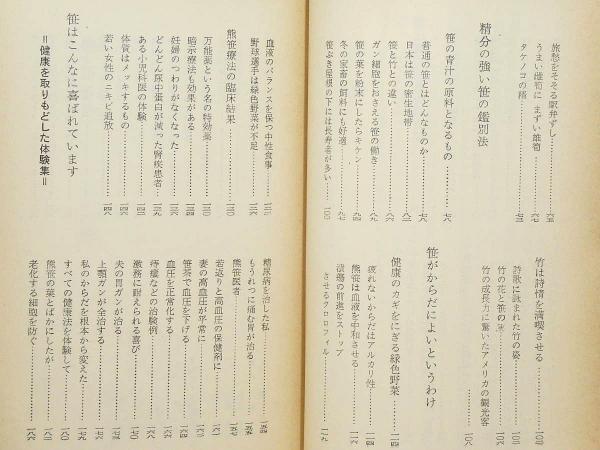 旅愁をそそる駅弁ずし……六五
うまい雌筍 まずい雄筍……六七
タケノコの精……七三
精分の強い笹の鑑別法
笹の青汁の原料となるもの……七八
普通の笹とはどんなものか……七八
日本は笹の密生地帯
笹と竹との違い……八六
ガン細胞をおさえる笹の働き……八九
笹の葉を粉末にしたらキケン……九四
冬の家畜の飼料にも好適……九七
笹ぶき屋根の下には長寿者が多い……一〇〇
竹は詩情を満喫させる……一〇二
詩歌に詠まれた竹の姿……一〇二
竹の花と笹の
竹の成長力に驚いたアメリカの観光客
……一〇八
笹がからだによいというわけ
健康のカギをにぎる緑色野菜……一一四
疲れないからだはアルカリ性……一一四
熊笹は血液を中和させる
潰瘍の前進をストップ
させるクロロフィル……一一九
血液のバランスを保つ中性食事
野球選手は緑色野菜が不足
熊笹療法の臨床結果……一三〇
万能薬という名の特効薬……一三〇
暗示療法も効果がある
妊婦のつわりがなくなった
どんどん尿中蛋白が減った腎疾患者……一三九
ある小児科医の体験
体質はメッキするもの……一四六
若い女性のニキビ追放……一四八
笹はこんなに喜ばれています
＝健康を取りもどした体験集＝
糖尿病を治した私……一五四
もうれつに痛む胃が治る
熊笹医者……一五七
若返りと高血圧の保健剤に
妻の高血圧が平常に
笹茶で血圧を下げる
血圧を正常化する
痔瘻などの治験例……一六八
激務に耐えられる喜び
夫の胃ガンが治る……一七五
上顎ガンが全治する
私のからだを根本から変えた……一七九
すべての健康法を体験して……一八〇
熊笹の葉とばかにしたが
老化する細胞を防ぐ……一八六